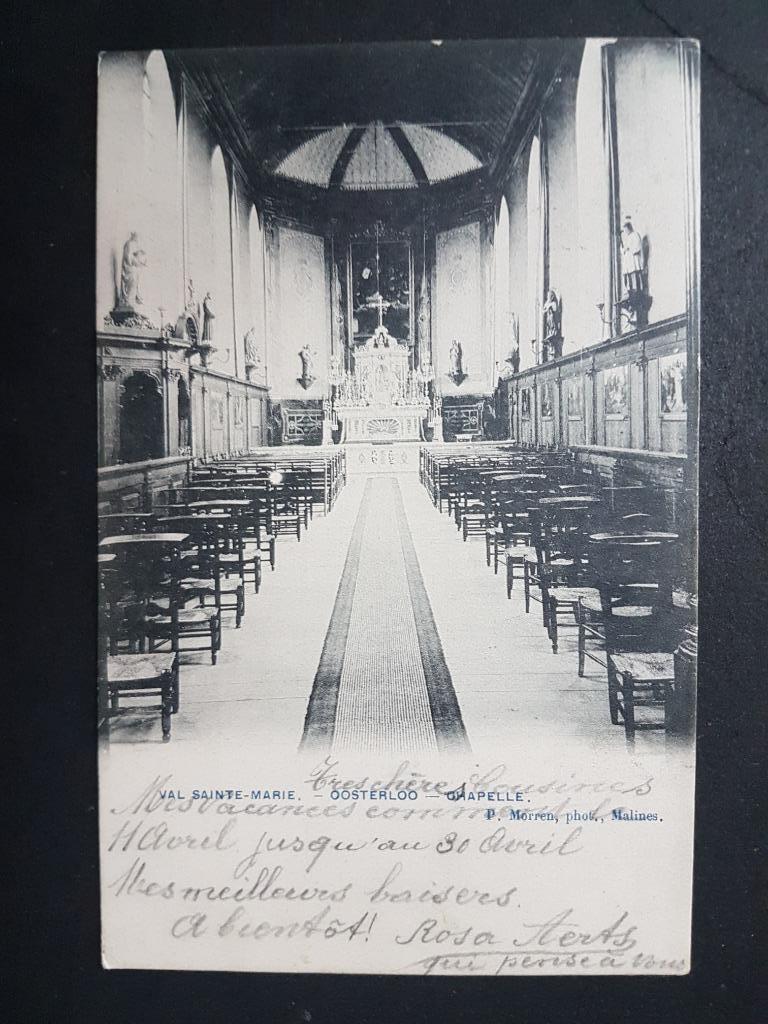 Tres chère Cousines
VAL SAINTE-MARIE. – OOSTERLOO – CHAPELLE.
Mes vacances commont le
P. Morren, phot., Malines.
11 Avril jusqu'au 30 Avril
Mes meilleurs baisers.
A bientôt! Rosa Aerts
qui pense à vous